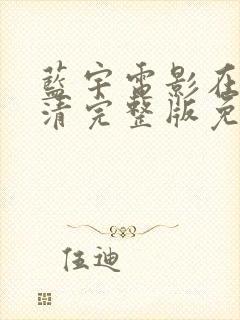 藍宇電影在
清完整版免
伍迪